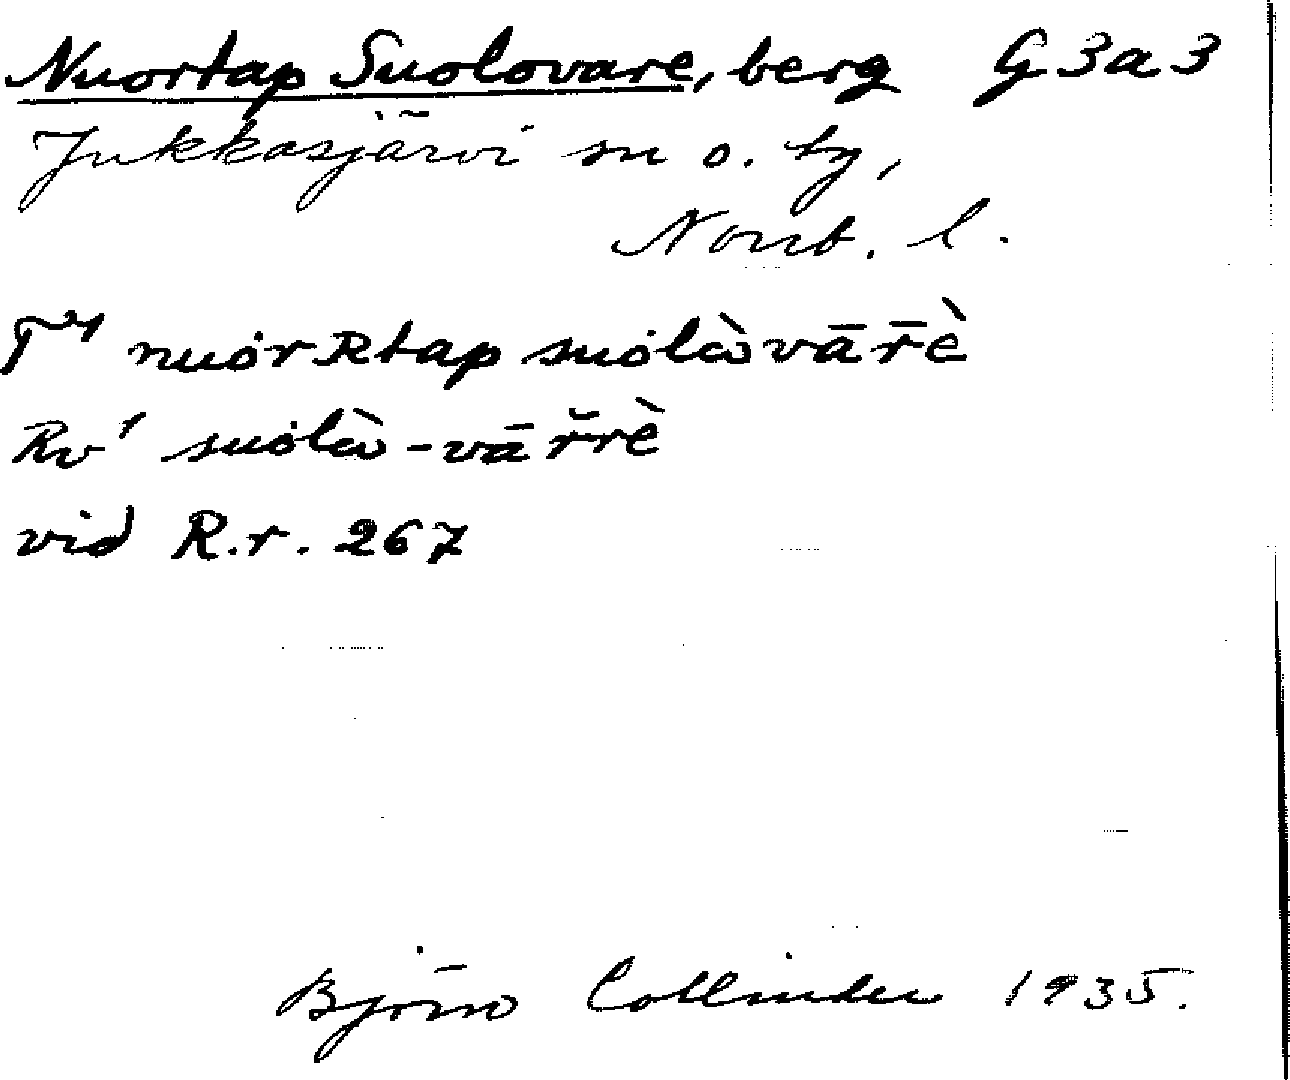 Nuortap Suolovare, berg G3a3
Jukkasjärvi sn o. by,
Norrb. l.
nuȯrRtap suȯlɑ̀vār̄è
suȯlɑ̀-vār̆rè
vid R.r. 267
Björn Collinder 1935.